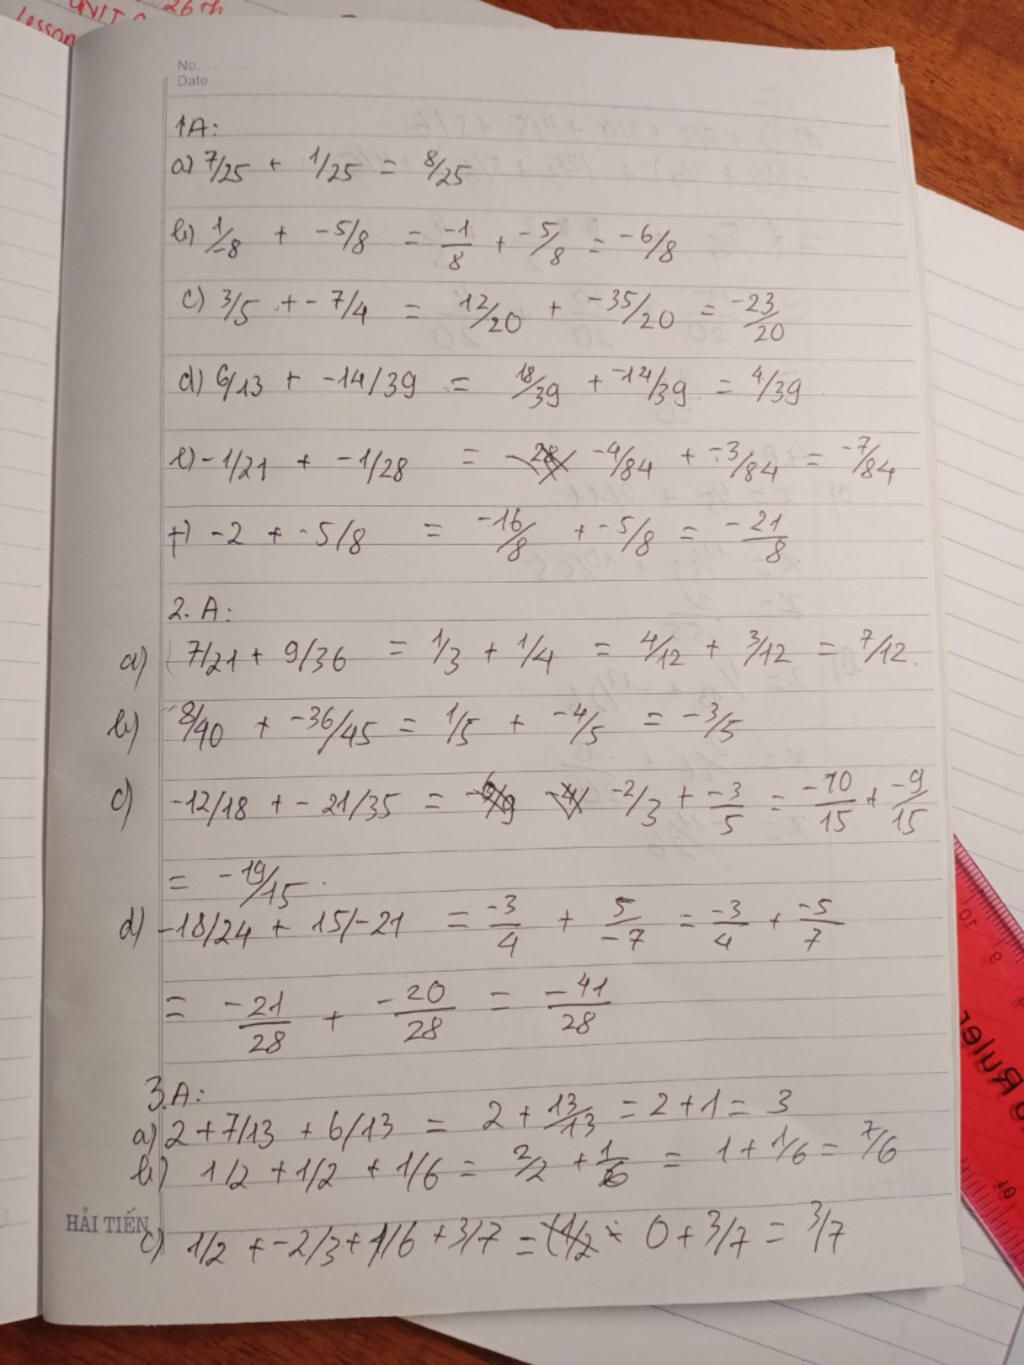 UNIT 26th
lesson
No.
Date
1A:
a) 7/25 + 1/25 = 8/25
b) 1/-8 + -5/8 = -1/8 + -5/8 = -6/8
c) 3/5 + -7/4 = 12/20 + -35/20 = -23/20
d) 6/13 + -14/39 = 18/39 + -14/39 = 4/39
e) -1/21 + -1/28 = -4/84 + -3/84 = -7/84
f) -2 + -5/8 = -16/8 + -5/8 = -21/8
2. A:
a) 7/21 + 9/36 = 1/3 + 1/4 = 4/12 + 3/12 = 7/12.
b) 8/40 + -36/45 = 1/5 + -4/5 = -3/5
c) -12/18 + -21/35 = -2/3 + -3/5 = -10/15 + -9/15
= -19/15.
d) -18/24 + 15/-21 = -3/4 + 5/-7 = -3/4 + -5/7
= -21/28 + -20/28 = -41/28
3.A:
a) 2 + 7/13 + 6/13 = 2 + 13/13 = 2 + 1 = 3
b) 1/2 + 1/2 + 1/6 = 2/2 + 1/6 = 1 + 1/6 = 7/6
HẢI TIẾN
c) 1/2 + -2/3 + 1/6 + 3/7 = 0 + 3/7 = 3/7
Ruler